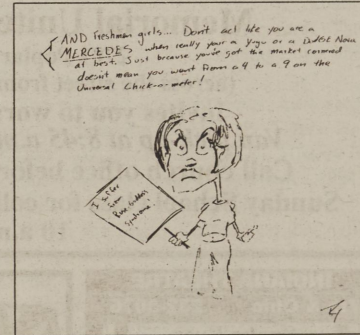 AND Freshman girls... Don't act like you are a
MERCEDES when really your a Yugo or a Nova
at best. Just because you've got the market cornered
doesn't mean you went from a 4 to a 9 on the
Universal Chick-o-meter!
I suffer
from
Syndrome!